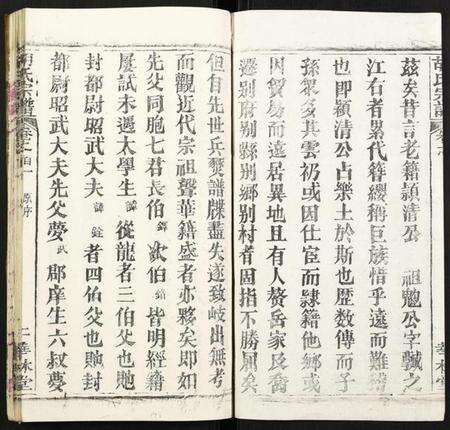 胡氏宗譜
卷之
華林堂
茲矣昔言老籍頴清公 祖勉公字諴之
江右者累代簪纓稱巨族惜乎遠而難稽
也即頴清公占樂土於斯也歷數傳而子
孫衆多其雲礽或因仕宦而隸籍他鄉或
因貿易而遠居異地且有人贅岳家及喬
遷别府别縣别鄉别村者固指不勝屈矣
但自先世兵燹譜牒盡失遂致岐出無考
而觀近代宗祖聲華籍盛者亦夥矣即如
先父同胞七君長伯 欲伯 皆明經籍
屢試未遇太學生 從龍者三伯父也貤
封都尉昭武大夫 者四佑父也貤封
都尉昭武大夫先父夢武 郡庠生六叔夢
胡氏宗譜
卷之 一 原序
二 華林堂